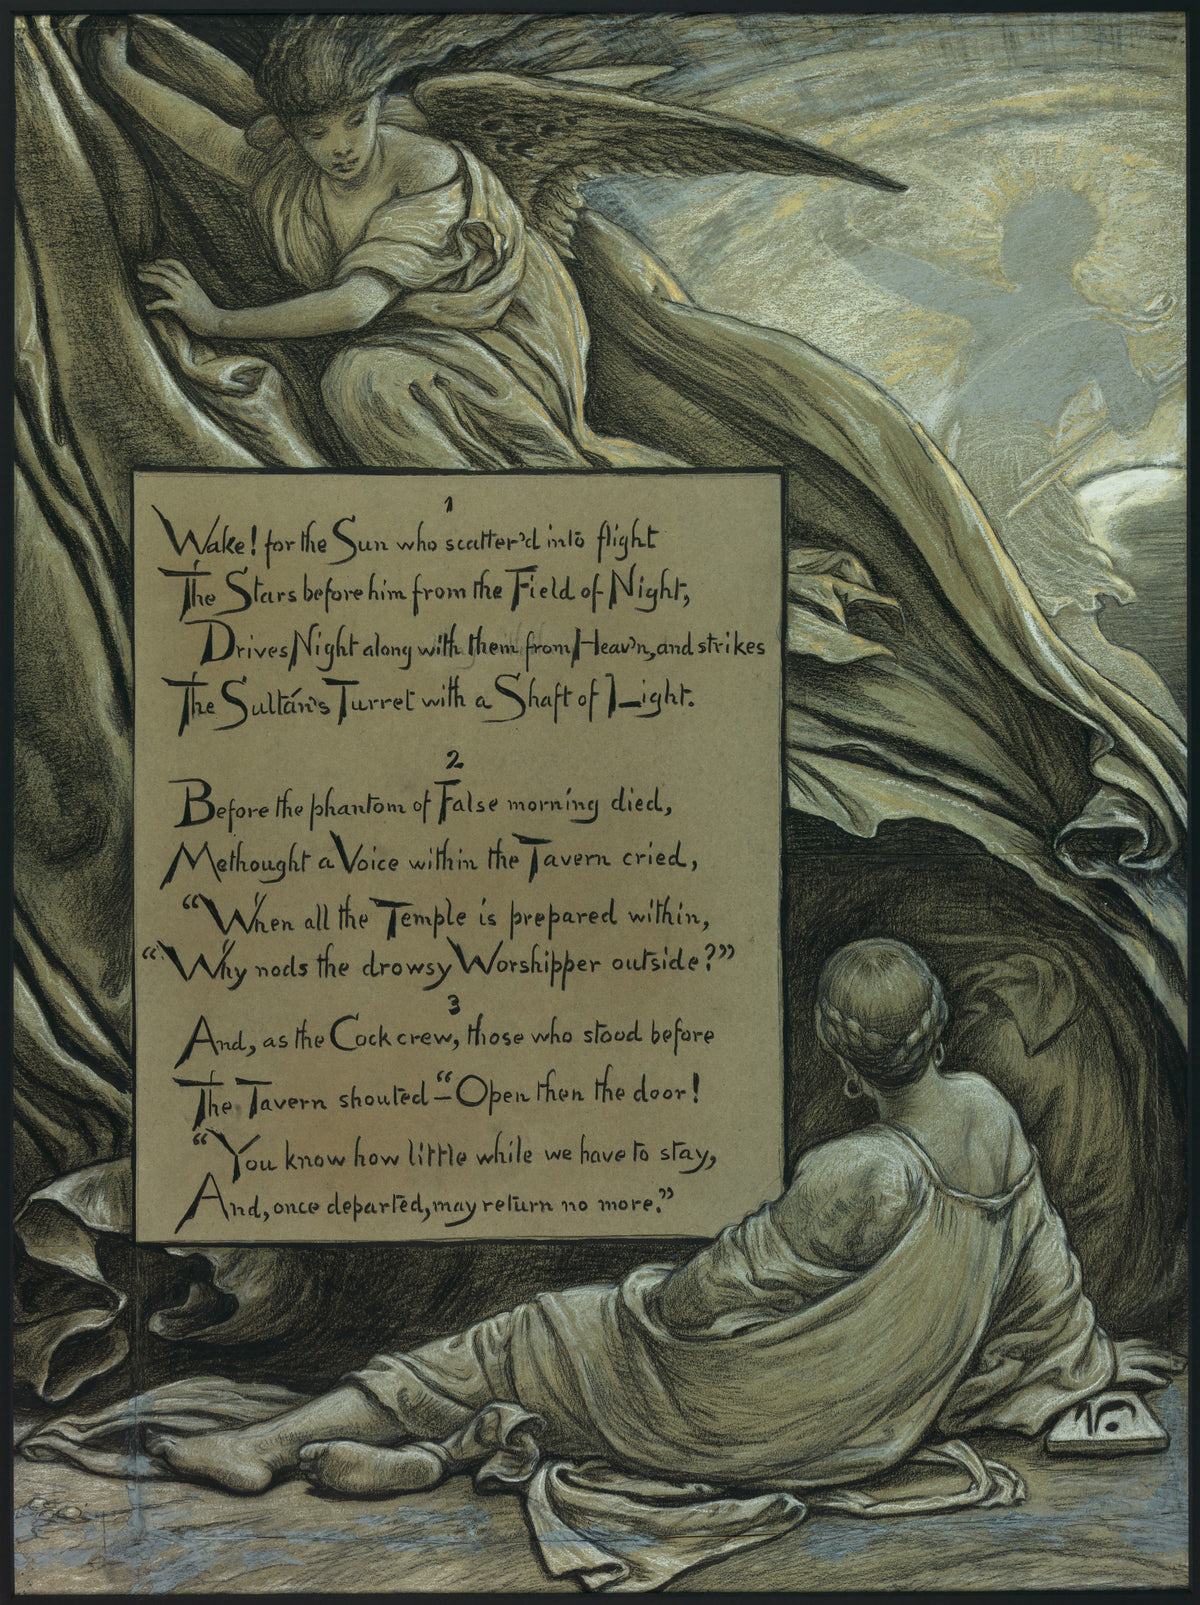 1
Wake! for the Sun who scatter'd into flight
The Stars before him from the Field of Night,
Drives Night along with them from Heav'n, and strikes
The Sultán's Turret with a Shaft of Light.
2
Before the phantom of False morning died,
Methought a Voice within the Tavern cried,
“When all the Temple is prepared within,
“Why nods the drowsy Worshipper outside?”
3
And, as the Cock crew, those who stood before
The Tavern shouted – “Open then the door!
“You know how little while we have to stay,
And, once departed, may return no more.”